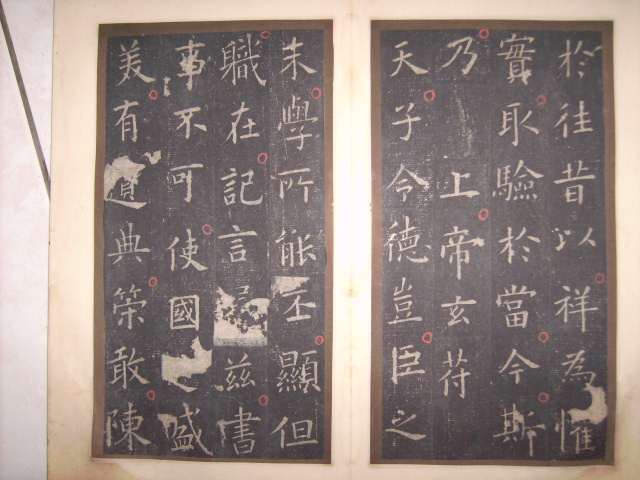 於往昔以祥為懼
實取驗於當今斯
乃 上帝玄符
天子令德豈臣之
末學所能丕顯但
職在記言屬茲書
事不可使國之盛
美有遺典策敢陳